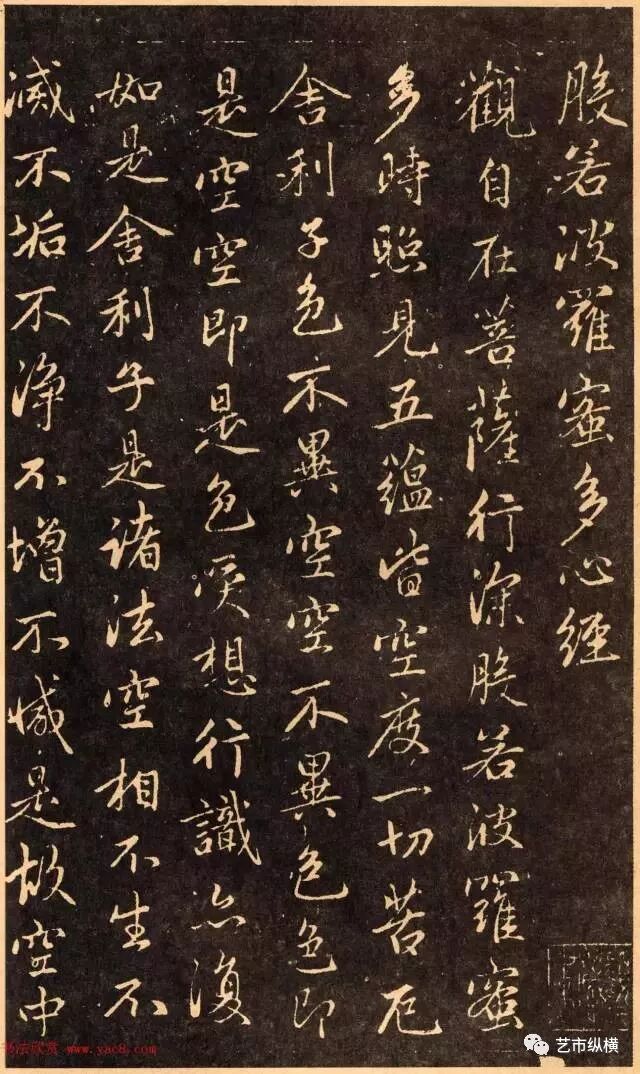 般若波羅蜜多心經
觀自在菩薩行深般若波羅蜜
多時照見五蘊皆空度一切苦厄
舍利子色不異空空不異色色即
是空空即是色受想行識亦復
如是舍利子是諸法空相不生不
滅不垢不淨不增不減是故空中
书法欣赏 www.yac8.com
艺市纵横